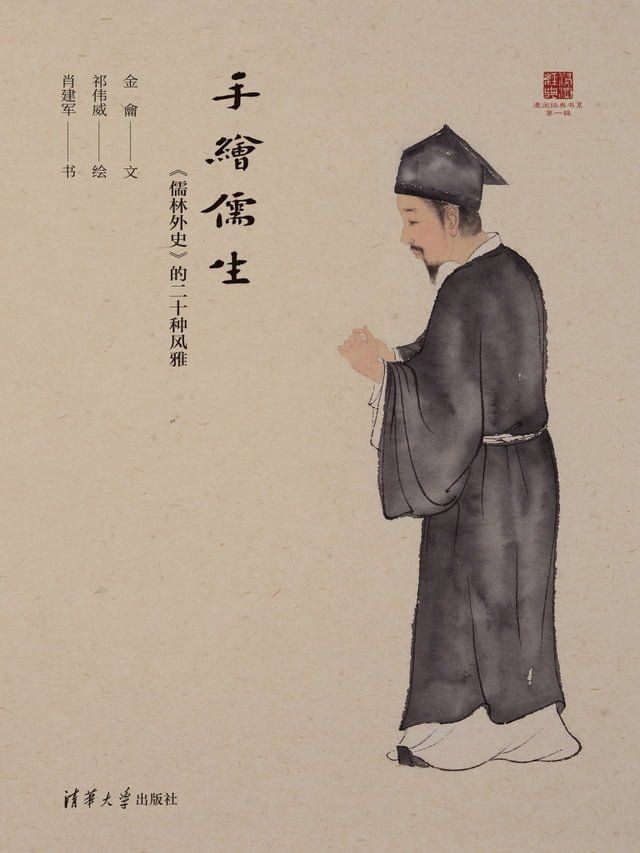 漫淡经典书系
第一辑
手繪儒生
《儒林外史》的二十种风雅
金 龠——文
祁伟威——绘
肖建军——书
清华大学出版社